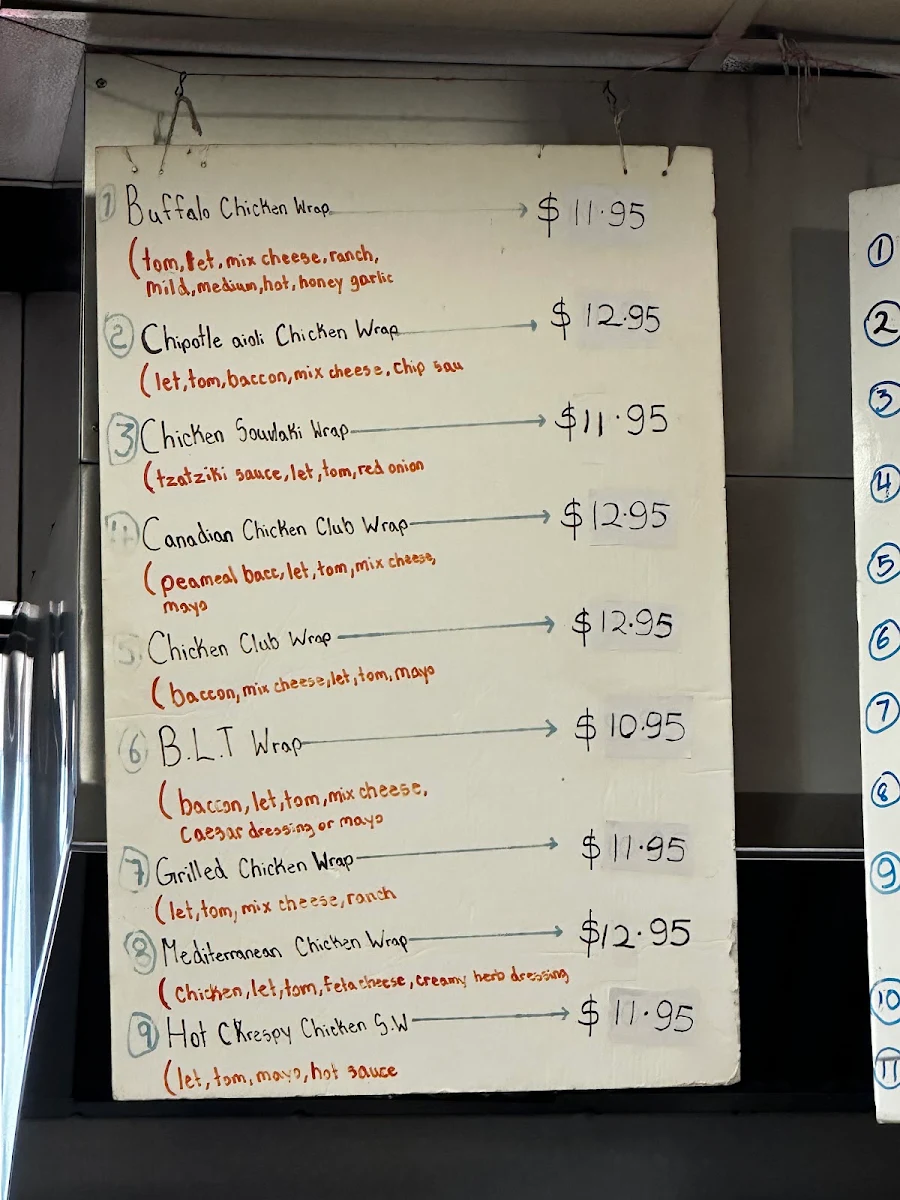 1 Buffalo Chicken Wrap $ 11.95
(tom, let, mix cheese, ranch,
mild, medium, hot, honey garlic
2 Chipotle aioli Chicken Wrap $ 12.95
(let, tom, baccon, mix cheese, chip sau
3 Chicken Souvlaki Wrap $11.95
(tzatziki sauce, let, tom, red onion
4 Canadian Chicken Club Wrap $12.95
(peameal bacc, let, tom, mix cheese,
mayo
5 Chicken Club Wrap $12.95
(baccon, mix cheese, let, tom, mayo
6 B.L.T Wrap $ 10.95
(baccon, let, tom, mix cheese,
Caesar dressing or mayo
7 Grilled Chicken Wrap $ 11.95
(let, tom, mix cheese, ranch
8 Mediterranean Chicken Wrap $12.95
(Chicken, let, tom, feta cheese, creamy herb dressing
9 Hot CKrespy Chicken S.W $ 11.95
(let, tom, mayo, hot sauce
1
2
3
4
5
6
7
8
9
10
11